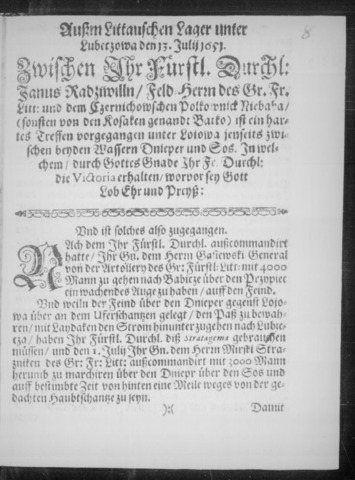 Außm Littauschen Lager unter
Lubeczowa den 13. Julij 1651.
8
Zwischen Ihr Fürstl. Durchl:
Janus Radziwilln / Feld-Herrn des Gr. Fr.
Litt: und dem Czernichowschen Polkownick Niebaba /
(sonsten von den Kosaken genandt Batko) ist ein har-
tes Treffen vorgegangen unter Loiowa jenseits zwi-
schen beyden Wassern Dnieper und Sos. In wel-
chem / durch Gottes Gnade Ihr Fe. Durchl:
die Victoria erhalten / worvor sey Gott
Lob Ehr und Preyß:
Und ist solches also zugegangen.
NAch dem Ihr Fürstl. Durchl. außcommandirt
hatte / Ihr Gn. dem Herrn Gasiewski General
von der Artollery des Gr: Fürstl: Litt: mit 4000
Mann zu gehen nach Babicze über den Przypiec
ein wachendes Auge zu haben / auff den Feind.
Und weiln der Feind über den Dnieper gegenst Loio-
wa über an dem Uferschantzen gelegt / den Paß zu bewah-
ren / mit Laydaken den Strom hinunter zugehen nach Lubie-
cza / haben Ihr Fürstl. Durchl. diß Stratagema gebrauchen
müssen / und den 1. Julij Ihr Gn. dem Herrn Mirski Stra-
zniken des Gr: Fr: Litt: außcommandirt mit 3000 Mann
herumb zu marchiren über den Dniepr über den Sos und
auff bestimbte Zeit von hinten eine Meile weges von der ge-
dachten Haubtschantze zu seyn.
):( Damit